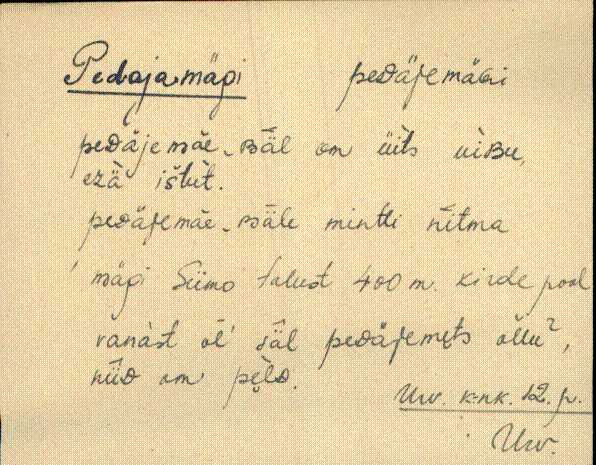 Pedajamägi pedäjemäǵi
pedäjemäe-ᴃäl om üits uiʙu,
ezä istut́.
pedäjemäe-ᴃäle mintti nītma
mägi Siimo talust 400 m. kirde pool
vanàst ōĺ sǟl pedäjemets õllu²,
nüiᴅ om pe̬lᴅ.
Urv. k-nk. 12. p.
Urv.